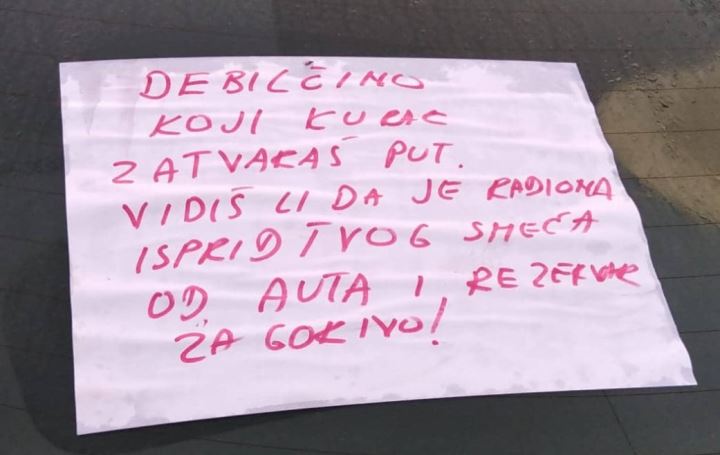 DEBILČINO
KOJI KURAC
ZATVARAŠ PUT.
VIDIŠ LI DA JE RADIONA
ISPRID TVOG SMEĆA
OD AUTA I REZERVAR
ZA GORIVO!